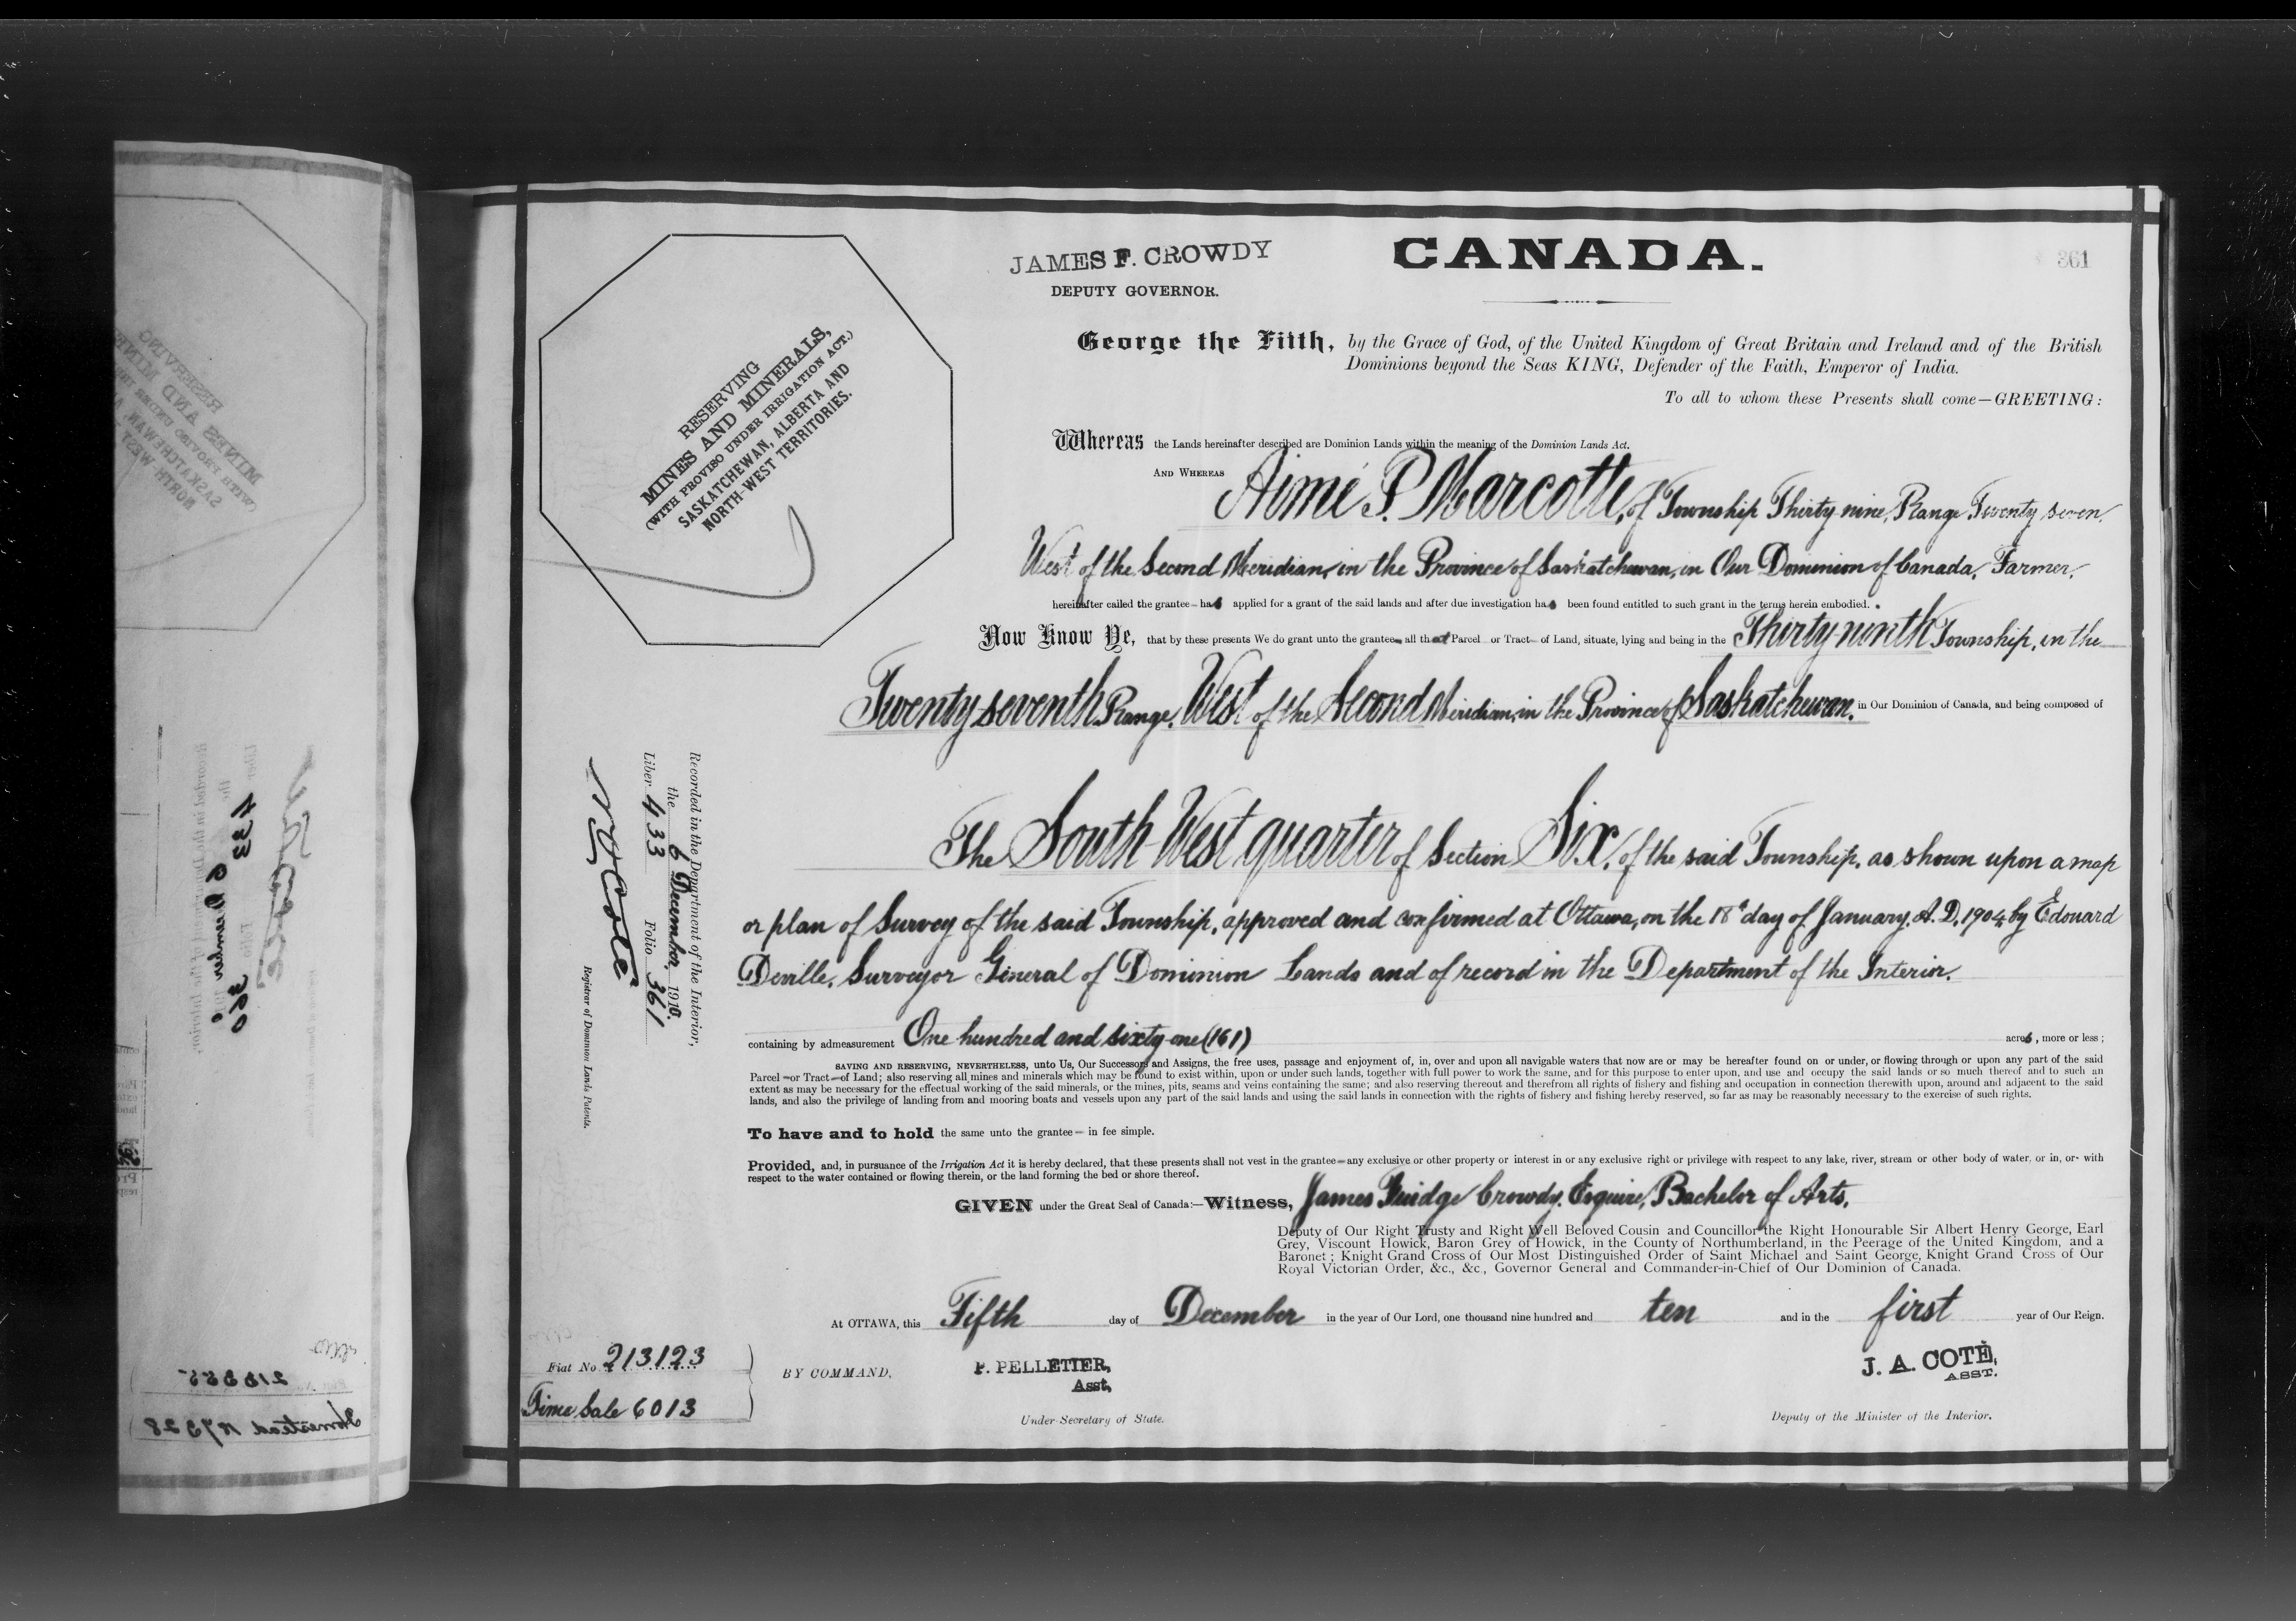 JAMES F. CROWDY
DEPUTY GOVERNOR.
CANADA.
361
RESERVING
MINES AND MINERALS,
(WITH PROVISO UNDER IRRIGATION ACT.)
SASKATCHEWAN, ALBERTA AND
NORTH-WEST TERRITORIES.
George the Fifth, by the Grace of God, of the United Kingdom of Great Britain and Ireland and of the British
Dominions beyond the Seas KING, Defender of the Faith, Emperor of India.
To all to whom these Presents shall come—GREETING:
Whereas the Lands hereinafter described are Dominion Lands within the meaning of the Dominion Lands Act.
AND WHEREAS Aimé P. Marcotte, of Township Thirty nine, Range Twenty seven,
West of the Second Meridian, in the Province of Saskatchewan, in Our Dominion of Canada, Farmer,
hereinafter called the grantee has applied for a grant of the said lands and after due investigation has been found entitled to such grant in the terms herein embodied.
Now Know Ye, that by these presents We do grant unto the grantee all that Parcel or Tract of Land, situate, lying and being in the Thirty-ninth Township, in the
Twenty seventh Range, West of the Second Meridian, in the Province of Saskatchewan, in Our Dominion of Canada, and being composed of
The South West quarter of Section Six, of the said Township, as shown upon a map
or plan of Survey of the said Township, approved and confirmed at Ottawa, on the 18th day of January, A.D. 1904, by Edouard
Deville, Surveyor General of Dominion Lands and of record in the Department of the Interior.
containing by admeasurement One hundred and sixty-one (161) acres, more or less;
SAVING AND RESERVING, NEVERTHELESS, unto Us, Our Successors and Assigns, the free uses, passage and enjoyment of, in, over and upon all navigable waters that now are or may be hereafter found on or under, or flowing through or upon any part of the said
Parcel or Tract of Land; also reserving all mines and minerals which may be found to exist within, upon or under such lands, together with full power to work the same, and for this purpose to enter upon, and use and occupy the said lands or so much thereof and to such an
extent as may be necessary for the effectual working of the said minerals, or the mines, pits, seams and veins containing the same; and also reserving thereout and therefrom all rights of fishery and fishing and occupation in connection therewith upon, around and adjacent to the said
lands, and also the privilege of landing from and mooring boats and vessels upon any part of the said lands and using the said lands in connection with the rights of fishery and fishing hereby reserved, so far as may be reasonably necessary to the exercise of such rights.
To have and to hold the same unto the grantee in fee simple.
Provided, and, in pursuance of the Irrigation Act it is hereby declared, that these presents shall not vest in the grantee any exclusive or other property or interest in or any exclusive right or privilege with respect to any lake, river, stream or other body of water, or in, or with
respect to the water contained or flowing therein, or the land forming the bed or shore thereof.
GIVEN under the Great Seal of Canada:—Witness, James Fuidge Crowdy, Esquire, Bachelor of Arts,
Deputy of Our Right Trusty and Right Well Beloved Cousin and Councillor the Right Honourable Sir Albert Henry George, Earl
Grey, Viscount Howick, Baron Grey of Howick, in the County of Northumberland, in the Peerage of the United Kingdom, and a
Baronet; Knight Grand Cross of Our Most Distinguished Order of Saint Michael and Saint George, Knight Grand Cross of Our
Royal Victorian Order, &c., &c., Governor General and Commander-in-Chief of Our Dominion of Canada.
At OTTAWA, this Fifth day of December in the year of Our Lord, one thousand nine hundred and ten and in the first year of Our Reign.
BY COMMAND,
P. PELLETIER,
Asst,
Under-Secretary of State.
J. A. COTÉ,
ASST.
Deputy of the Minister of the Interior.
Fiat No. 213123
Time Sale 6013
Recorded in the Department of the Interior,
the 6 December, 1910.
Liber 433 Folio 361
N O Coté
Registrar of Dominion Lands Patents.
433
213355